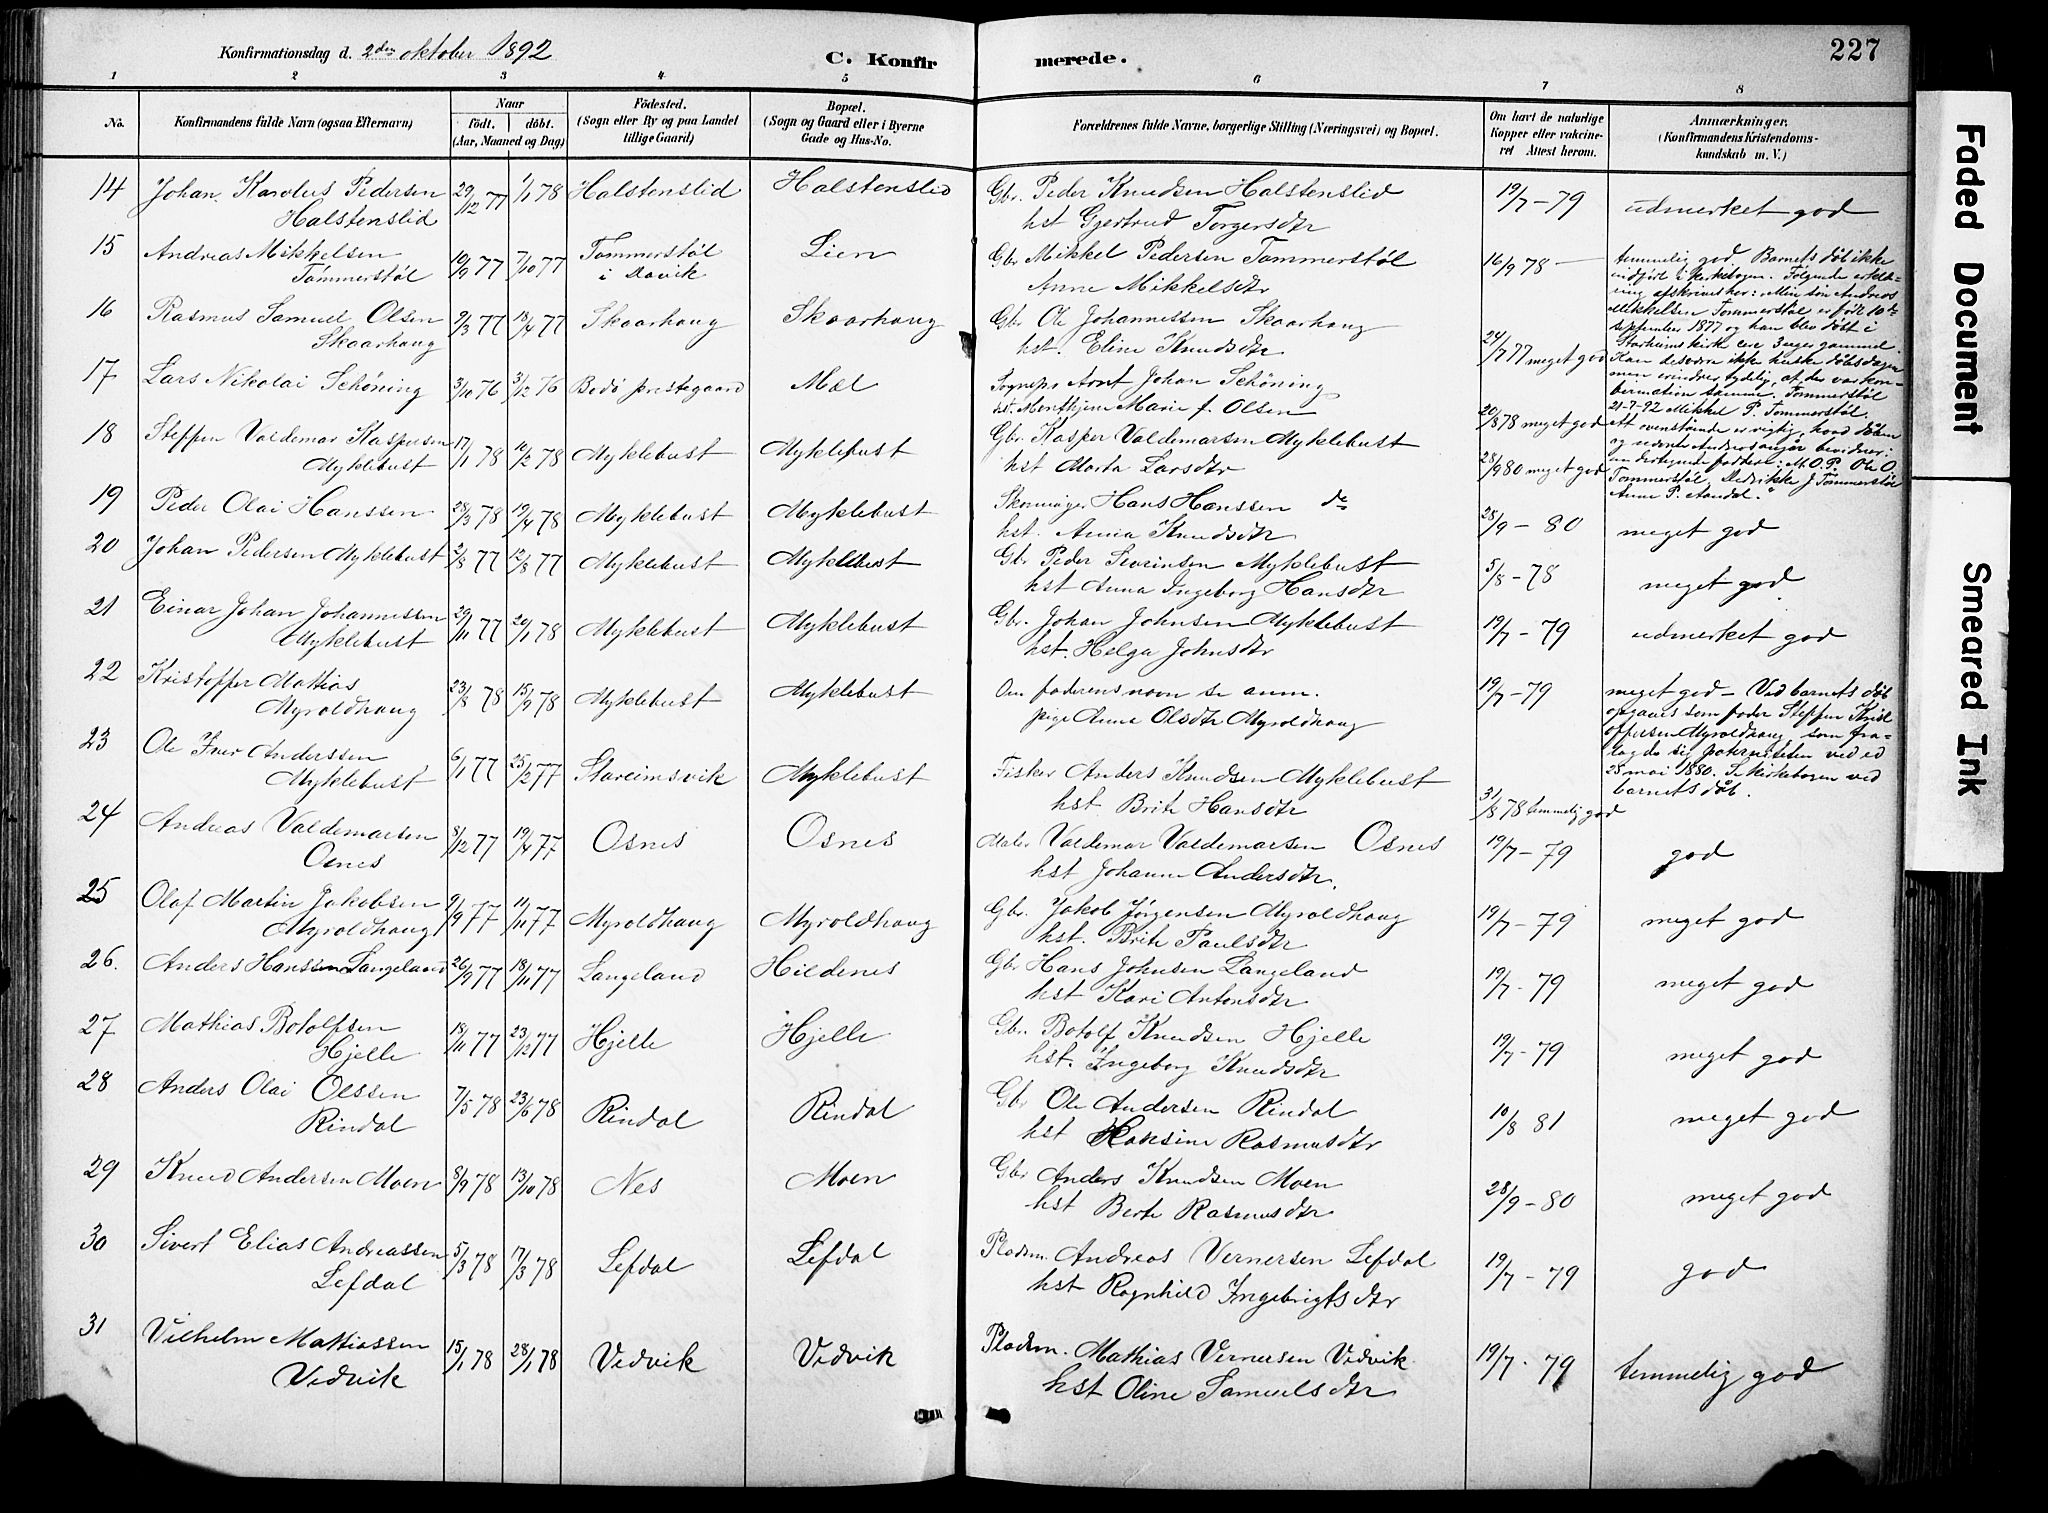 Konfirmationsdag d. 2den oktober 1892
C. Konfirmerede.
227
1 2 3 4 5 6 7 8
No.
Konfirmandens fulde Navn (ogsaa Efternavn)
Naar
födt. döbt.
(Aar, Maaned og Dag)
Födested.
(Sogn eller By og paa Landet
tillige Gaard)
Bopæl.
(Sogn og Gaard eller i Byerne
Gade og Hus-No.
Forældrenes fulde Navne, borgerlige Stilling (Næringsvei) og Bopæl.
Om havt de naturlige
Kopper eller vakcine-
ret Attest herom.
Anmærkninger.
(Konfirmandens Kristendoms-
kundskab m. V.)
14 Johan Karolus Pedersen 29/12 77 1/1 78 Halstenslid Halstenslid Gbr. Peder Knudsen Halstenslid 19/7-79 udmerket god
Halstenslid hst Gjertrud Torgersdtr
15 Andreas Mikkelsen 10/9 77 7/10 77 Tømmerstøl Lien Gbr Mikkel Pedersen Tømmerstøl 16/9 78 —
Tømmerstøl i Davik Anne Mikkelsdtr
temmelig god. Barnets døb ikke
indført i kirkebogen. Følgende erklæ-
ring afskrives her: Min søn Andreas
Mikkelsen Tømmerstøl er født 10de
september 1877 og han blev døbt i
Starheims kirke ca 3 uger gammel
Kan desværre ikke huske døbsdagen
men erindrer tydelig, at der var kon-
firmation samme. Tømmerstøl
21-7-92 Mikkel P. Tømmerstøl.
At ovenstaaende er rigtig, hvad døben
undertegnede faddere: M.O.P. Ole O.
Tømmerstøl, Fredrikke J Tømmerstøl
Anne P. Aandal."
16 Rasmus Samuel Olsen 9/3 77 18/4 77 Skaarhaug Skaarhaug Gbr Ole Johannessen Skaarhaug 24/7 77 meget god
Skaarhaug hst. Eline Knudsdtr
17 Lars Nikolai Schöning 3/10 76 3/12 76 Bodø prestegaard Mæl Sognepr Arnt Johan Schöning 20/8 78 meget god
hst. Menthjine Marie f. Olsen
18 Steffen Valdemar Kaspersen 17/1 78 10/2 78 Myklebust Myklebust Gbr. Kasper Valdemarsen Myklebust 28/9 80 meget god
Myklebust hst Marta Larsdtr
19 Peder Olai Hanssen 28/3 78 19/4 78 Myklebust Myklebust Skomager Hans Hanssen do 28/9 - 80 meget god
hst. Anna Knudsdtr
20 Johan Pedersen Myklebust 2/8 77 12/8 77 Myklebust Myklebust Gbr Peder Severinsen Myklebust 5/8-78 meget god
hst Anna Ingeborg Hansdtr
21 Einar Johan Johannessen 29/11 77 20/1 78 Myklebust Myklebust Gbr. Johan Johnsen Myklebust 19/7-79 udmerket god
Myklebust hst. Helga Johnsdtr
22 Kristoffer Mathias 23/8 78 15/9 78 Myklebust Myklebust Om faderens navn se anm. 19/7-79
Myroldhaug pige Anne Olsdtr Myroldhaug
meget god – Ved barnets døb
opgaves som fader Steffen Krist
offersen Myroldhaug, som fra-
lagde sig paterniteten ved ed
28 mai 1880. Se kirkebogen ved
barnets døb.
23 Ole Iver Anderssen 6/1 77 25/2 77 Stareimsvik Myklebust Fisker Anders Knudsen Myklebust 31/8 78 temmelig god
Myklebust hst. Brite Hansdtr
24 Andreas Valdemarsen 8/12 77 19/4 77 Osnes Osnes Maler Valdemar Valdemarsen Osnes 19/7-79 god
Osnes hst Johanne Andersdtr.
25 Olaf Martin Jakobsen 9/9 77 11/11 77 Myroldhaug Myroldhaug Gbr. Jakob Jørgensen Myroldhaug 19/7-79 meget god
Myroldhaug hst. Brite Paulsdtr
26. Anders Hanssen Langeland 26/9 77 18/11 77 Langeland Hildenes Gbr Hans Johnsen Langeland 19/7-79 meget god
hst Kari Antonsdtr
27 Mathias Botolfsen 18/11 77 23/12 77 Hjelle Hjelle Gbr. Botolf Knudsen Hjelle 19/7-79 meget god
Hjelle hst. Ingeborg Knudsdtr
28 Anders Olai Olssen 7/5 78 23/6 78 Rindal Rindal Gbr Ole Andersen Rindal 10/8 81 meget god
Rindal hst Hansine Rasmusdtr
29 Knud Andersen Moen 8/9 78 13/10 78 Nes Moen Gbr Anders Knudsen Moen 28/9-80 meget god
hst Berte Rasmusdtr
30 Sivert Elias Andreassen 5/3 78 17/3 78 Lefdal Lefdal Pladsm. Andreas Vernersen Lefdal 19/7-79 god
Lefdal hst Ragnhild Ingebrigtsdtr
31 Vilhelm Mathiassen 15/1 78 28/1 78 Vedvik Vedvik Pladsm. Mathias Vernersen Vedvik 19/7-79 temmelig god
Vedvik hst Oline Samuelsdtr
Faded Document
Smeared Ink